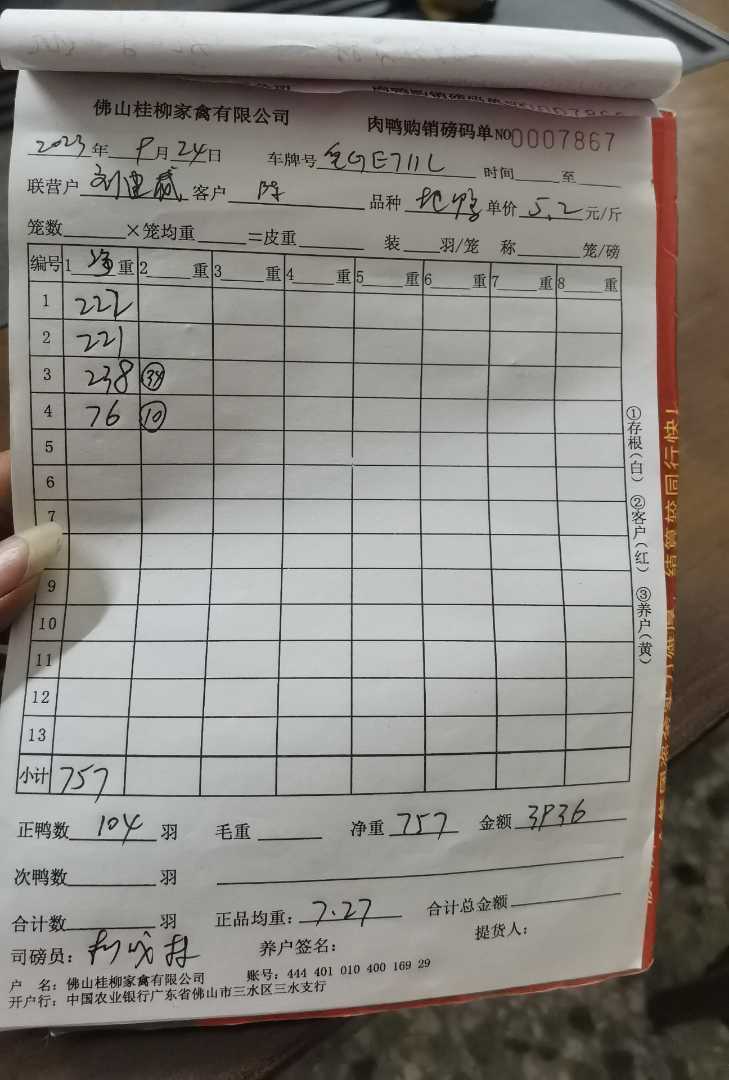 佛山桂柳家禽有限公司
肉鸭购销磅码单 NO 0007867
2023年 9月24日 车牌号 GE711L 时间 至
联营户 刘建 客户 陈 品种 单价 5.2 元/斤
笼数 ×笼均重 =皮重 装 羽/笼 称 笼/磅
编号 1 净 重 2 重 3 重 4 重 5 重 6 重 7 重 8 重
1 222
2 221
3 238 34
4 76 10
5
6
7
9
10
11
12
13
小计 757
正鸭数 104 羽 毛重 净重 757 金额 3936
次鸭数 羽
合计数 羽 正品均重: 7.27 合计总金额
司磅员: 养户签名: 提货人:
户 名: 佛山桂柳家禽有限公司 账号: 444 401 010 400 169 29
开户行: 中国农业银行广东省佛山市三水区三水支行
①存根(白) ②客户(红) ③养户(黄)